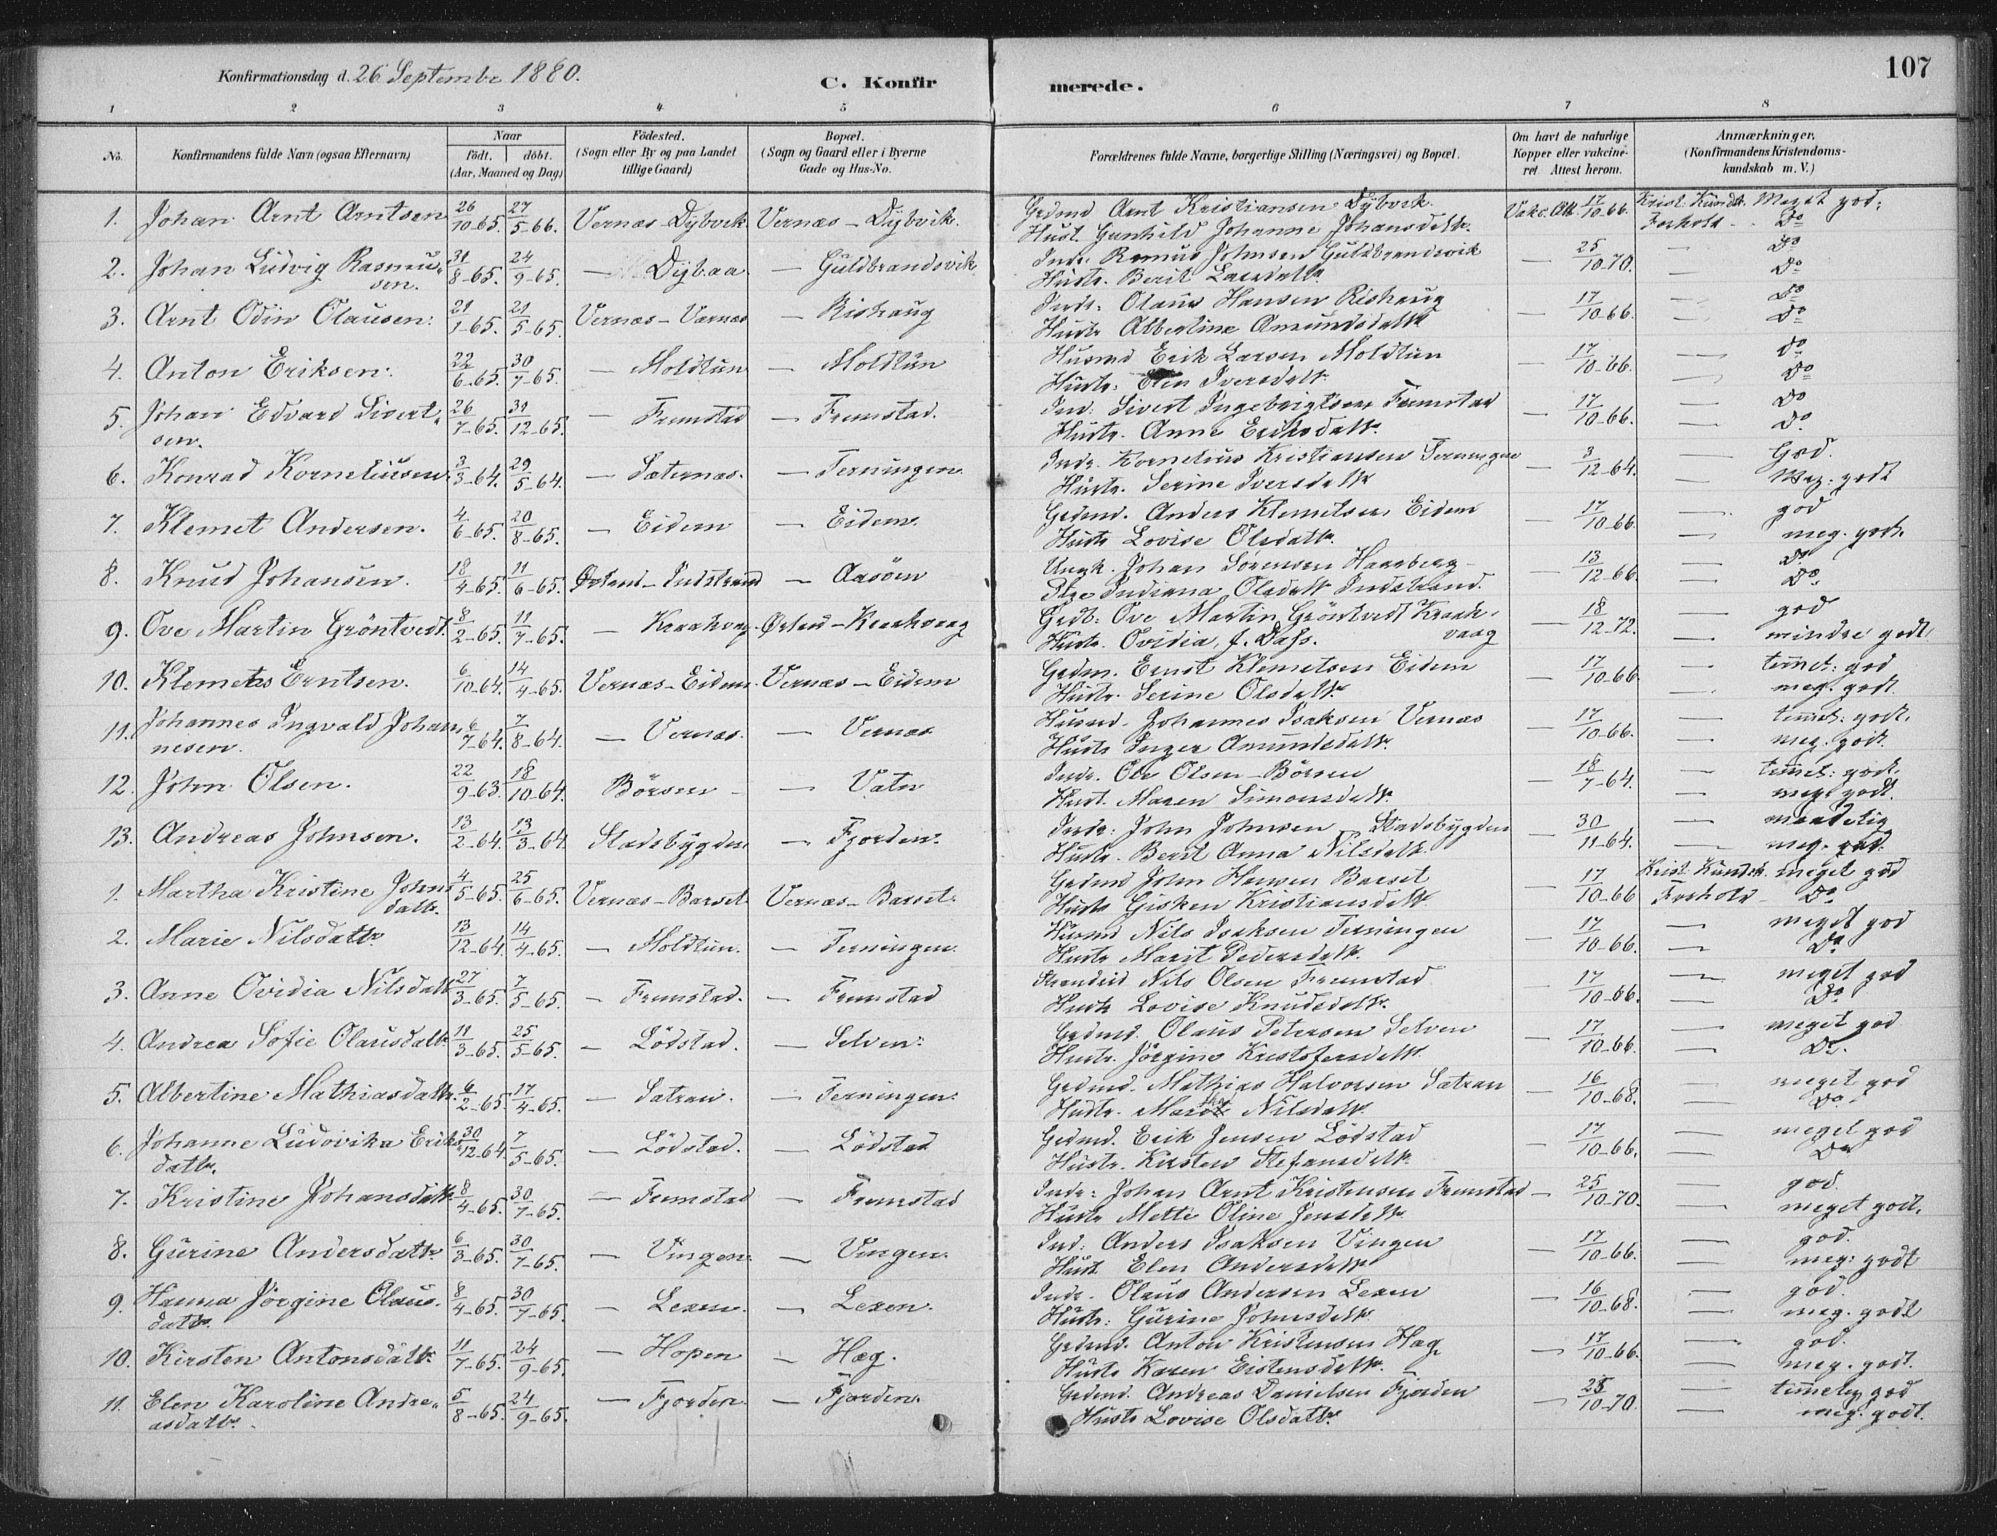 107
Konfirmationsdag d. 26 Septembr 1880.
C. Konfirmerede.
1 2 3 4 5 6 7 8
No.
Konfirmandens fulde Navn (ogsaa Efternavn)
Naar
født. | döbt.
(Aar, Maaned og Dag)
Födested.
(Sogn eller By og paa Landet
tillige Gaard)
Bopæl.
(Sogn og Gaard eller i Byerne
Gade og Hus-No.
Forældrenes fulde Navne, borgerlige Stilling (Næringsvei) og Bopæl.
Om havt de naturlige
Kopper eller vakcine-
ret. Attest herom.
Anmærkninger.
(Konfirmandens Kristendoms-
kundskab m. V.)
1. Johan Arnt Arntsen 26/10-65. 27/5-66. Vernæs-Dybvik Vernæs-Dybvik. Grdmd Arnt Kristiansen Dybvik. Vakc. Att. 17/10-66. Krist. Kundsk. Meget god.
Hust. Gunhild Johanne Johansdatt. Forhold - Do
2. Johan Ludvig Rasmussen. 31/8-65. 24/9-65. — Dybaa — Guldbrandsvik Indr. Rasmus Johnsen Guldbrandsvik — 25/10-70. — Do
Hustr. Berit Larsdatt. — Do
3. Arnt Odin Olausen. 21/1-65. 21/5-65. Vernæs-Vernæs — Rishaug Indr. Olaus Hansen Rishaug — 17/10-66. — Do
Hustr Albertine Amundsdatt — Do
4. Anton Eriksen. 22/6-65. 30/7-65. — Moldtun — Moldtun Husmd Erik Larsen Moldtun — 17/10-66. — Do
Hustr. Elen Iversdatt. — Do
5. Johan Edvard Sivertsen. 26/7-65. 31/12-65. — Fremstad — Fremstad. Ind. Sivert Ingebrigtsen Fremstad — 17/10-66. — Do
Hustr. Anne Eriksdatt. — Do
6. Konrad Korneliusen 3/3-64. 29/5-64. — Sæternæs. — Terningen. Indr. Kornelius Kristiansen Terningen — 3/12-64. — God.
Hustr. Serine Iversdatt — Meg. godt
7. Klemet Andersen. 4/6-65. 20/8-65. — Eidem — Eidem. Grdmd. Anders Klemetsen Eidem — 17/10-66. — god
Hustr Lovise Olsdatt. — meg. godt.
8. Knud Johansen. 18/4-65. 11/6-65. Ørland-Indstrand — Aasöen Ungk. Johan Sörensen Haarberg — 13/12-66. — Do
Pige Indiana Olsdatt Indstrand. — Do
9. Ove Martin Gröntvedt. 8/2-65. 11/7-65. — Kraakvag. Ørland-Kraakvaag Grdb. Ove Martin Gröntvedt Kraakvaag — 18/12-72. — god
Hustr. Ovidia f. Dass. — mindre godt.
10. Klemet Erntsen. 6/10-64. 14/4-65. Vernæs-Eidem. Vernæs-Eidem Grdm. Ernst Klemetsen Eidem — 17/10-66 — temmel: god
Hustr. Serine Olsdatt. — meg. godt.
11. Johannes Ingvald Johannesen. 6/7-64. 7/8-64. — Vernæs. — Vernæs Husmd. Johannes Isaksen Vernæs — 17/10-66. — temmel: godt.
Hustr Inger Amundsdatt. — meg. godt.
12. John Olsen. 22/9-63. 18/10-64. Börsen — Vatn Indr. Ole Olsen Börsen — 18/7-64. — temmel: godt.
Hust. Maren Simonsdatt. — meg. godt.
13. Andreas Johnsen. 13/2-64. 13/3-64. Stadsbygden — Fjorden. Indr: John Johnsen Stadsbygden — 30/11-64. — maadelig
Hustr. Berit Anna Nilsdatt. — meg. god.
1. Martha Kristine Johnsdatt. 4/5-65. 25/6-65. Vernæs-Barset. Vernæs-Barset. Grdmd John Hansen Barset — 17/10-66 Krist. Kundsk. meget god
Hustr Gisken Kristiansdatt. Forhold — Do
2. Marie Nilsdatt. 13/12-64. 14/4-65. — Moldtun. — Terningen. Husmd Nils Isaksen Terningen — 17/10-66. — meget god
Hustr Marit Pedersdatt. — Do
3. Anne Ovidia Nilsdatt 27/3-65. 7/5-65. — Fremstad. — Fremstad Strandsid Nils Olsen Fremstad — 17/10-66. — meget god
Hustr Lovise Knudsdatt. — Do
4. Andrea Sofie Olausdatt. 11/3-65. 25/5-65. — Lödstad. — Selven. Grdmd. Olaus Petersen Selven — 17/10-66. — meget god
Hustr. Jörgine Kristofersdatt. — Do.
5. Albertine Mathiasdatt. 6/2-65. 17/4-65. — Sætran. — Terningen. Grdmd. Mathias Halvorsen Sætran — 16/10-68. — meget god
Hustr. Nilsdatt. — Do
6. Johanne Ludovika Eriksdatt. 30/12-64. 7/5-65. — Lödstad. — Lödstad Grdmd. Erik Jensen Lödstad — 17/10-66. — meget god
Hustr. Kirsten Stefansdatt. — Do
7. Kristine Johansdatt. 8/4-65. 30/7-65. — Fremstad — Fremstad Indr: Johan Arnt Kristensen Fremstad — 25/10-70. — god
Hustr Mette Oline Jensdatt. — meget godt.
8. Gurine Andersdatt. 6/3-65. 30/7-65. — Vingen. — Vingen. Ind: Anders Isaksen Vingen — 17/10-66. — god.
Hust. Elen Andersdatt — meg: godt
9. Hanna Jörgine Olausdatt. 8/4-65. 30/7-65. — Lexen. — Lexen. Indr. Olaus Andersen Lexen — 16/10-68. — god.
Hustr: Gurine Johnsdatt. — meg. godt
10. Kirsten Antonsdatt. 11/7-65. 24/9-65. — Hopen — Hag. Grdmd. Anton Kristensen Hag — 17/10-66. — god.
Hustr Karen Eistensdatt. — meg. godt.
11. Elen Karoline Andreasdatt. 5/8-65. 24/9-65. — Fjorden. — Fjorden. Grdmd. Andreas Danielsen Fjorden — 25/10-70. — temmelig god
Hustr Lovise Olsdatt. — meg. godt.